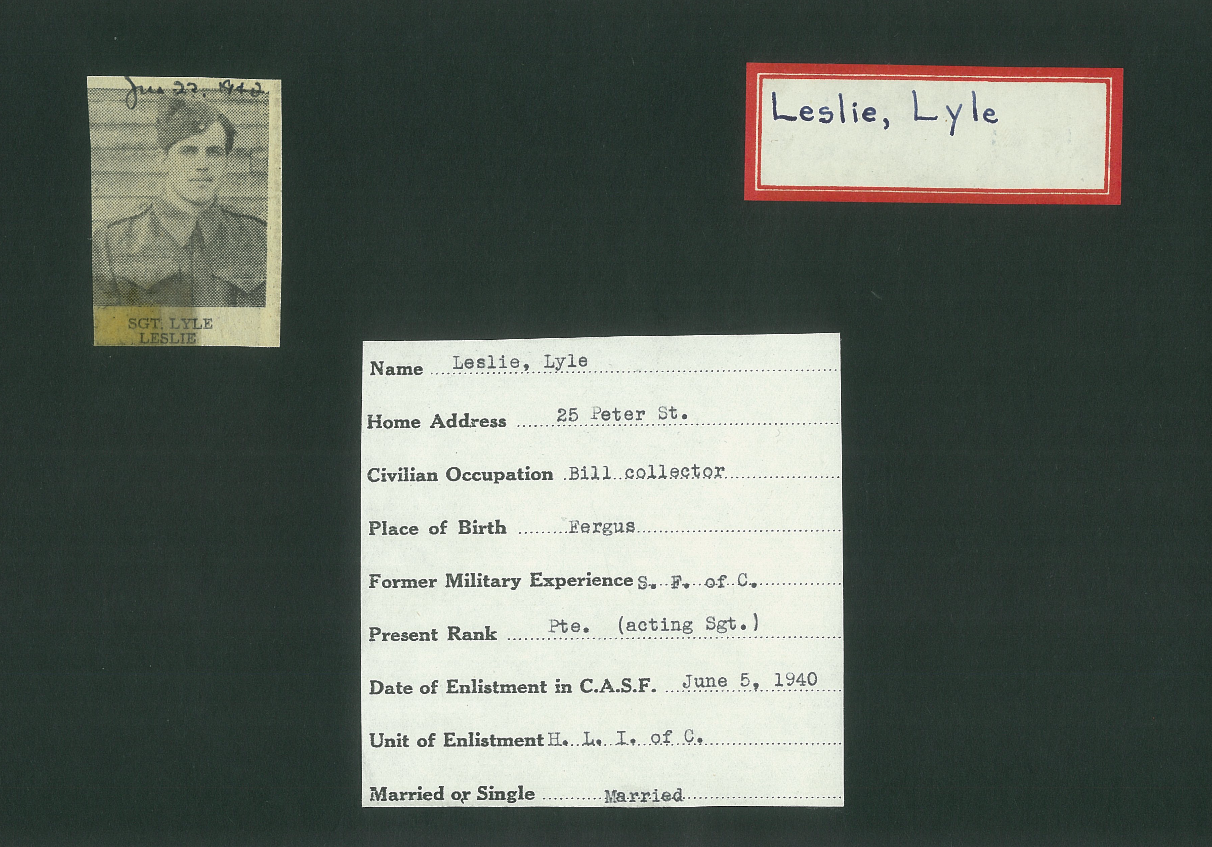 Jun 22, 1942
Leslie, Lyle
SGT. LYLE
LESLIE
Name Leslie, Lyle
Home Address 25 Peter St.
Civilian Occupation Bill collector
Place of Birth Fergus
Former Military Experience S. F. of C.
Present Rank Pte. (acting Sgt.)
Date of Enlistment in C.A.S.F. June 5, 1940
Unit of Enlistment H. L. I. of C.
Married or Single Married